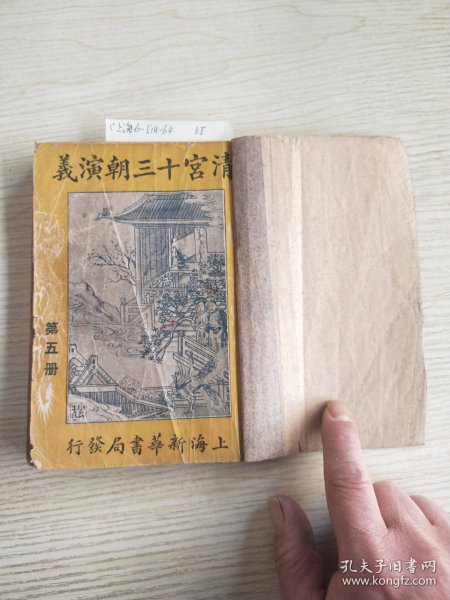 C上海6-518-64 35
清宮十三朝演義
第五册
上海新華書局發行
孔夫子旧书网
www.kongfz.com